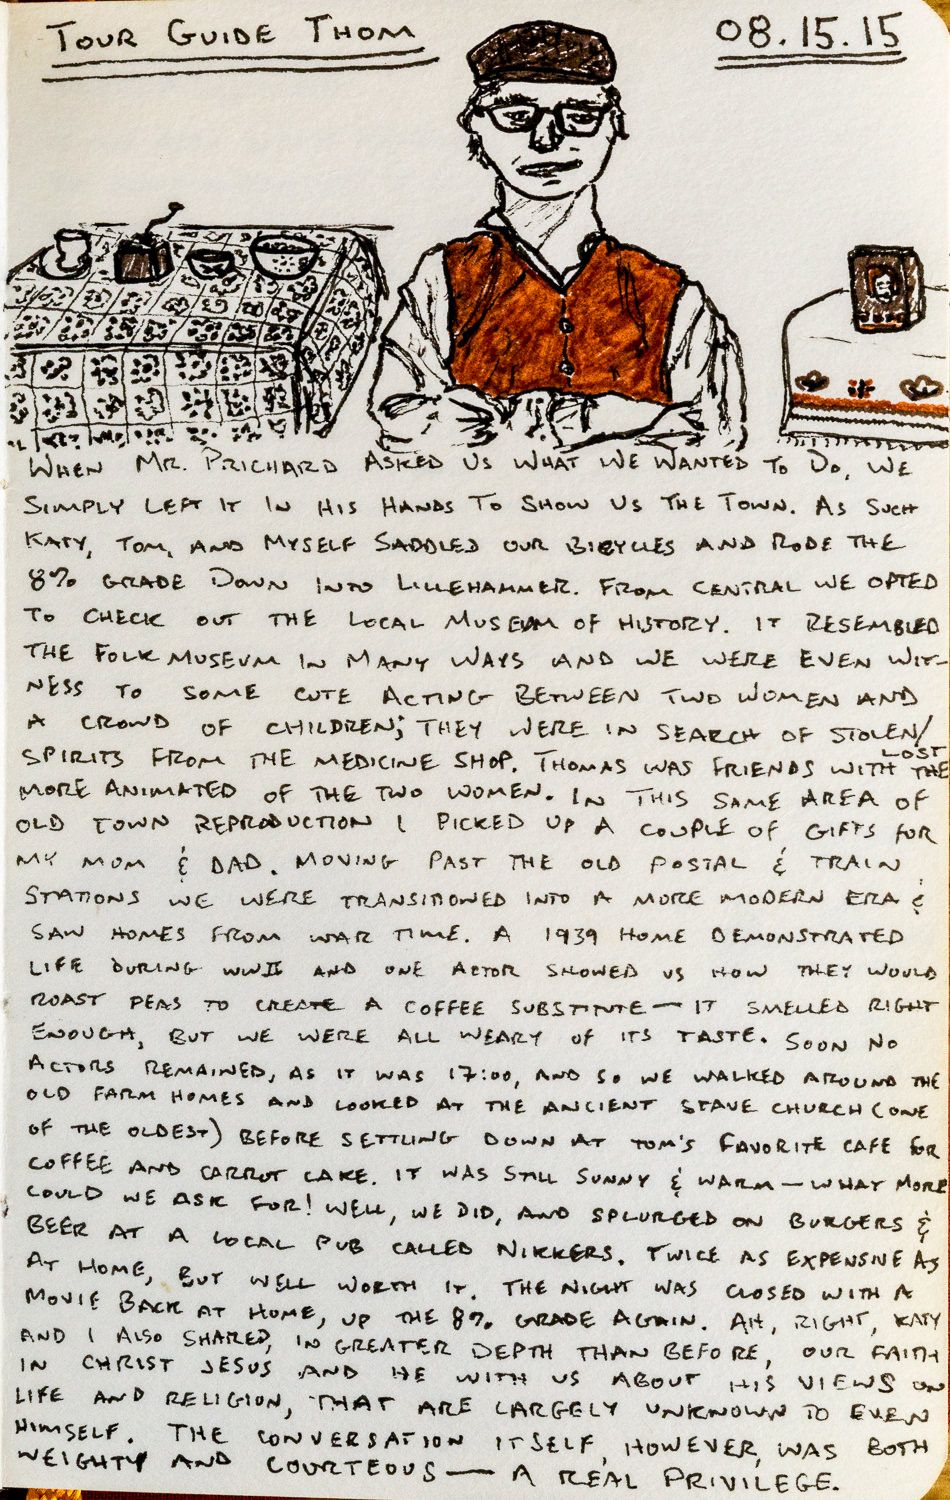 TOUR GUIDE THOM
08.15.15
WHEN MR. PRICHARD ASKED US WHAT WE WANTED TO DO, WE
SIMPLY LEFT IT IN HIS HANDS TO SHOW US THE TOWN. AS SUCH
KATY, TOM, AND MYSELF SADDLED OUR BICYCLES AND RODE THE
8% GRADE DOWN INTO LILLEHAMMER. FROM CENTRAL WE OPTED
TO CHECK OUT THE LOCAL MUSEUM OF HISTORY. IT RESEMBLED
THE FOLK MUSEUM IN MANY WAYS AND WE WERE EVEN WIT-
NESS TO SOME CUTE ACTING BETWEEN TWO WOMEN AND
A CROWD OF CHILDREN; THEY WERE IN SEARCH OF STOLEN/
LOST
SPIRITS FROM THE MEDICINE SHOP. THOMAS WAS FRIENDS WITH THE
MORE ANIMATED OF THE TWO WOMEN. IN THIS SAME AREA OF
OLD TOWN REPRODUCTION I PICKED UP A COUPLE OF GIFTS FOR
MY MOM & DAD. MOVING PAST THE OLD POSTAL & TRAIN
STATIONS WE WERE TRANSITIONED INTO A MORE MODERN ERA &
SAW HOMES FROM WAR TIME. A 1939 HOME DEMONSTRATED
LIFE DURING WWII AND ONE ACTOR SHOWED US HOW THEY WOULD
ROAST PEAS TO CREATE A COFFEE SUBSTITUTE — IT SMELLED RIGHT
ENOUGH, BUT WE WERE ALL WEARY OF ITS TASTE. SOON NO
ACTORS REMAINED, AS IT WAS 17:00, AND SO WE WALKED AROUND THE
OLD FARM HOMES AND LOOKED AT THE ANCIENT STAVE CHURCH (ONE
OF THE OLDEST) BEFORE SETTLING DOWN AT TOM'S FAVORITE CAFE FOR
COFFEE AND CARROT CAKE. IT WAS STILL SUNNY & WARM — WHAT MORE
COULD WE ASK FOR! WELL, WE DID, AND SPLURGED ON BURGERS &
BEER AT A LOCAL PUB CALLED NIKKERS. TWICE AS EXPENSIVE AS
AT HOME, BUT WELL WORTH IT. THE NIGHT WAS CLOSED WITH A
MOVIE BACK AT HOME, UP THE 8% GRADE AGAIN. AH, RIGHT, KATY
AND I ALSO SHARED, IN GREATER DEPTH THAN BEFORE, OUR FAITH
IN CHRIST JESUS AND HE WITH US ABOUT HIS VIEWS ON
LIFE AND RELIGION, THAT ARE LARGELY UNKNOWN TO EVEN
HIMSELF. THE CONVERSATION ITSELF, HOWEVER, WAS BOTH
WEIGHTY AND COURTEOUS — A REAL PRIVILEGE.